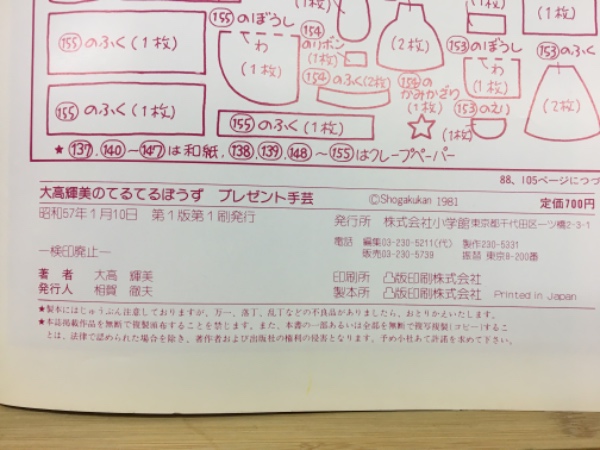 155のふく(1枚)
155のふく(1枚)
155のぼうし
わ
(1枚)
154
のリボン
(1枚)
154のふく(2枚)
155のふく(1枚)
(2枚)
154の
かみかざり
(1枚)
153のぼうし
わ
(1枚)
153のえり
(1枚)
(1枚)
153のふく
(2枚)
★137,140〜147は和紙,138,139,148〜155はクレープペーパー
88、105ページにつづ
大高輝美のてるてるぼうず プレゼント手芸 ©Shogakukan 1981 定価700円
昭和57年1月10日 第1版第1刷発行
発行所 株式会社小学館 東京都千代田区一ツ橋2-3-1
電話 編集03-230-5211(代) 製作230-5331
販売03-230-5739 振替 東京8-200番
―検印廃止―
著者 大高 輝美
発行人 相賀 徹夫
印刷所 凸版印刷株式会社
製本所 凸版印刷株式会社 Printed in Japan
★製本にはじゅうぶん注意しておりますが、万一、落丁、乱丁などの不良品がありましたら、おとりかえいたします。
★本誌掲載作品を無断で複製頒布することを禁じます。また、本書の一部あるいは全部を無断で複写複製(コピー)するこ
とは、法律で認められた場合を除き、著作者および出版社の権利の侵害となります。予め小社あて許諾を求めて下さい。